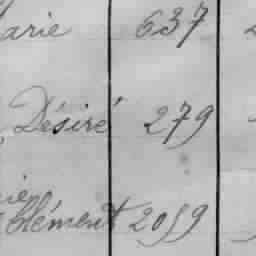 arie 637
Désiré 279
ie
Clément 2059